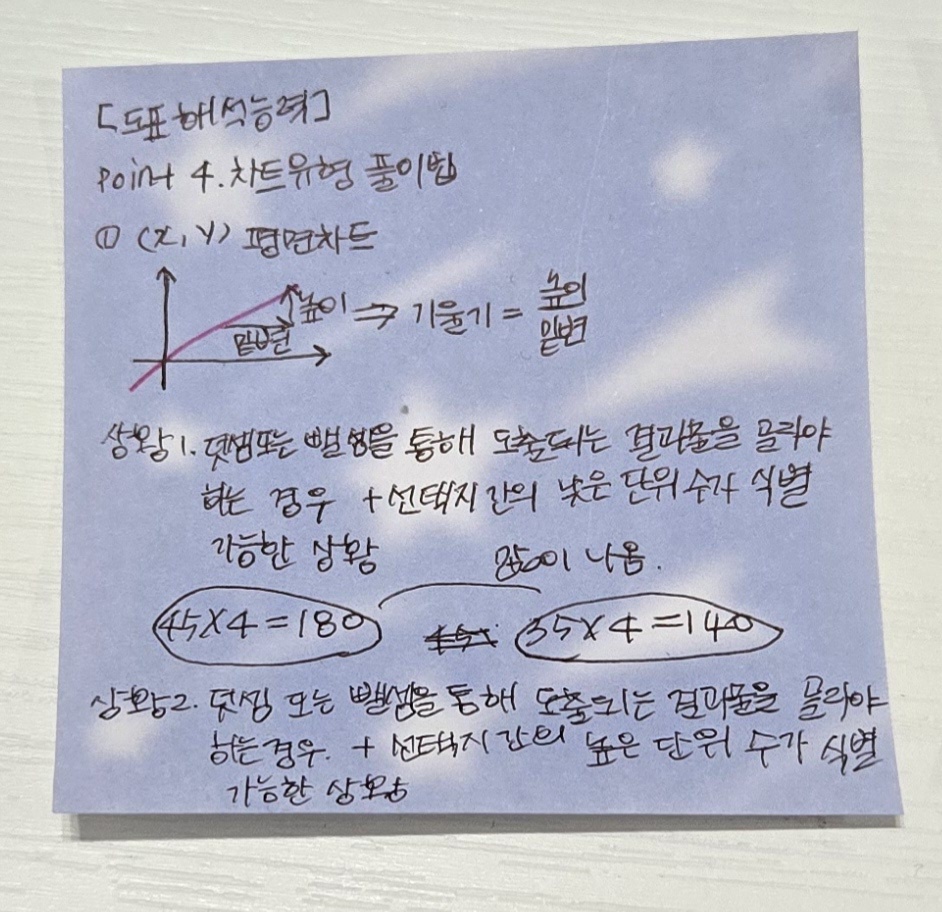 [도표해석능력]
point 4. 차트유형 풀이법
① (x, y) 평면차트
높이
밑변
⇒ 기울기 = 높이
밑변
상황1. 덧셈또는 뺄셈을 통해 도출되는 결과물을 골라야
하는 경우 + 선택지 간의 낮은 단위 수가 식별
가능한 상황
값이 나옴.
45×4=180 35×4=140
상황2. 덧셈 또는 뺄셈을 통해 도출되는 결과물을 골라야
하는경우. + 선택지 간의 높은 단위 수가 식별
가능한 상황